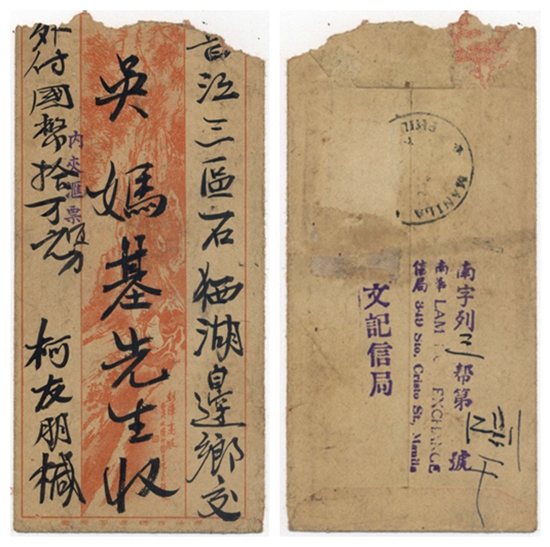 江三區石湖邊鄉交
吳媽基先生收
內夾滙票
外付國幣拾万元
柯友朋椷
MANILA
PHIL
南字列三帮第號
LAM EXCHANGE
信局 349 Sto. Cristo St., Manila
文記信局